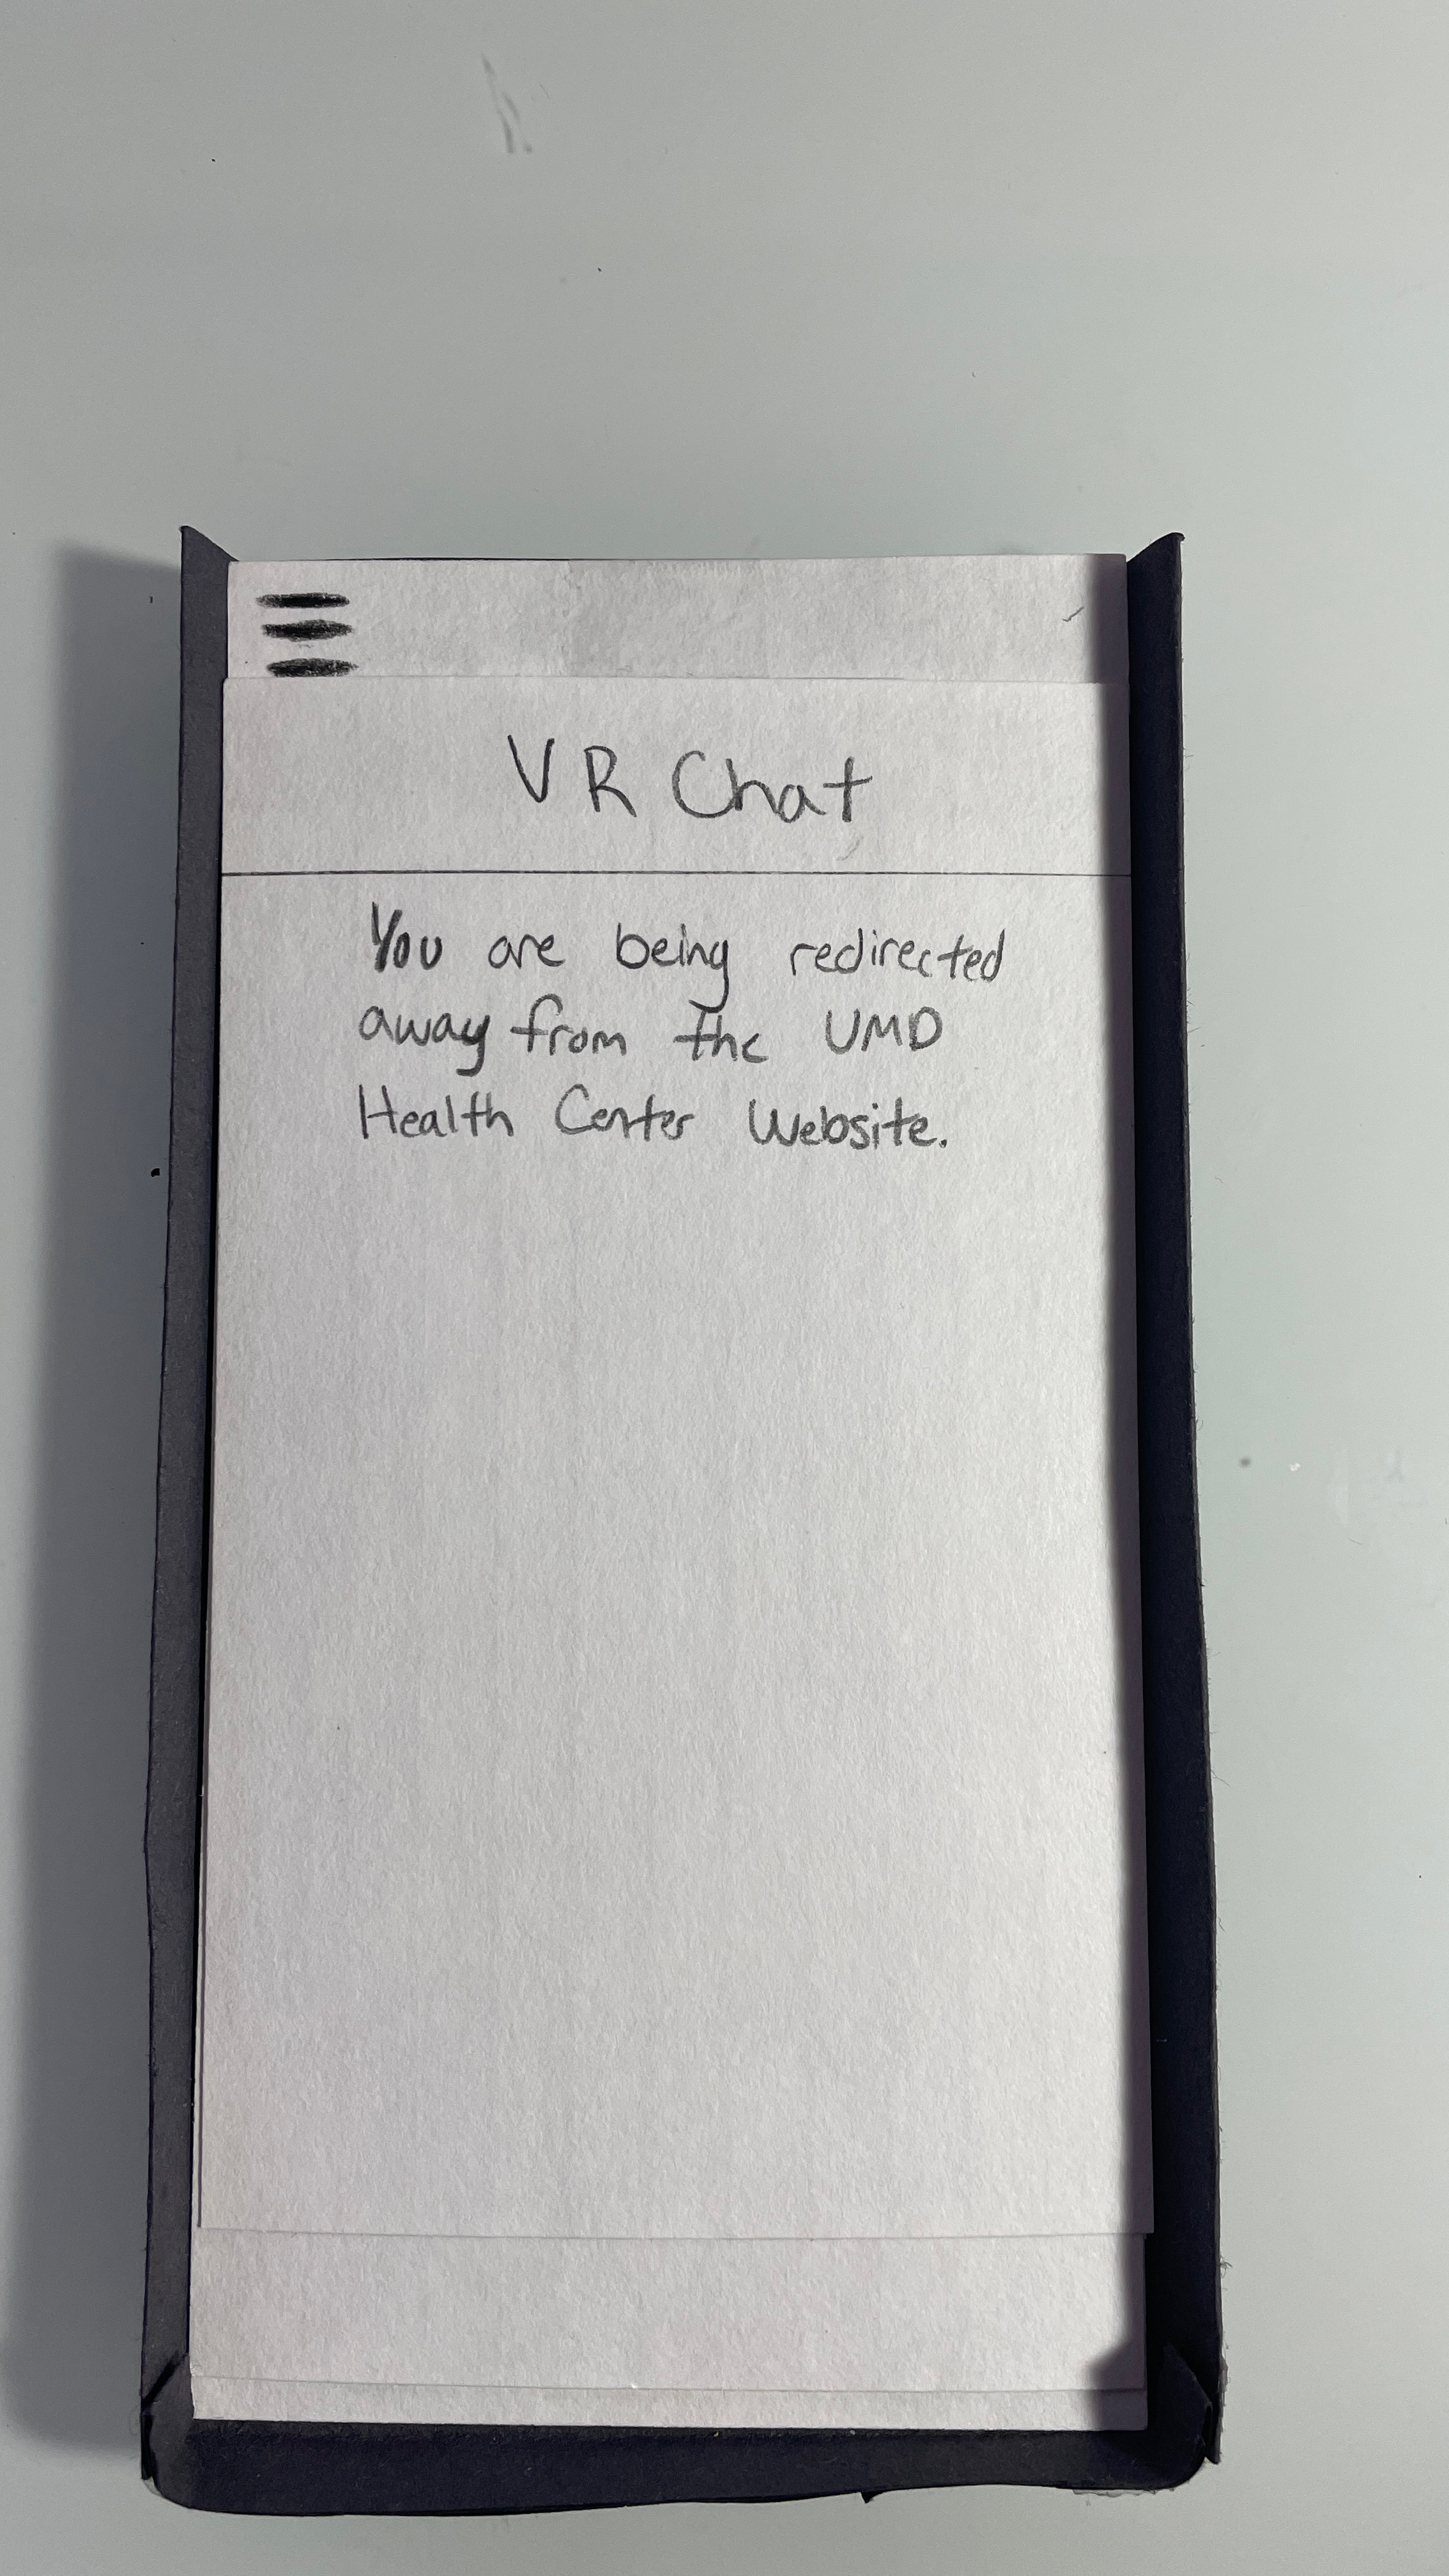 VR Chat
You are being redirected
away from the UMD
Health Center Website.